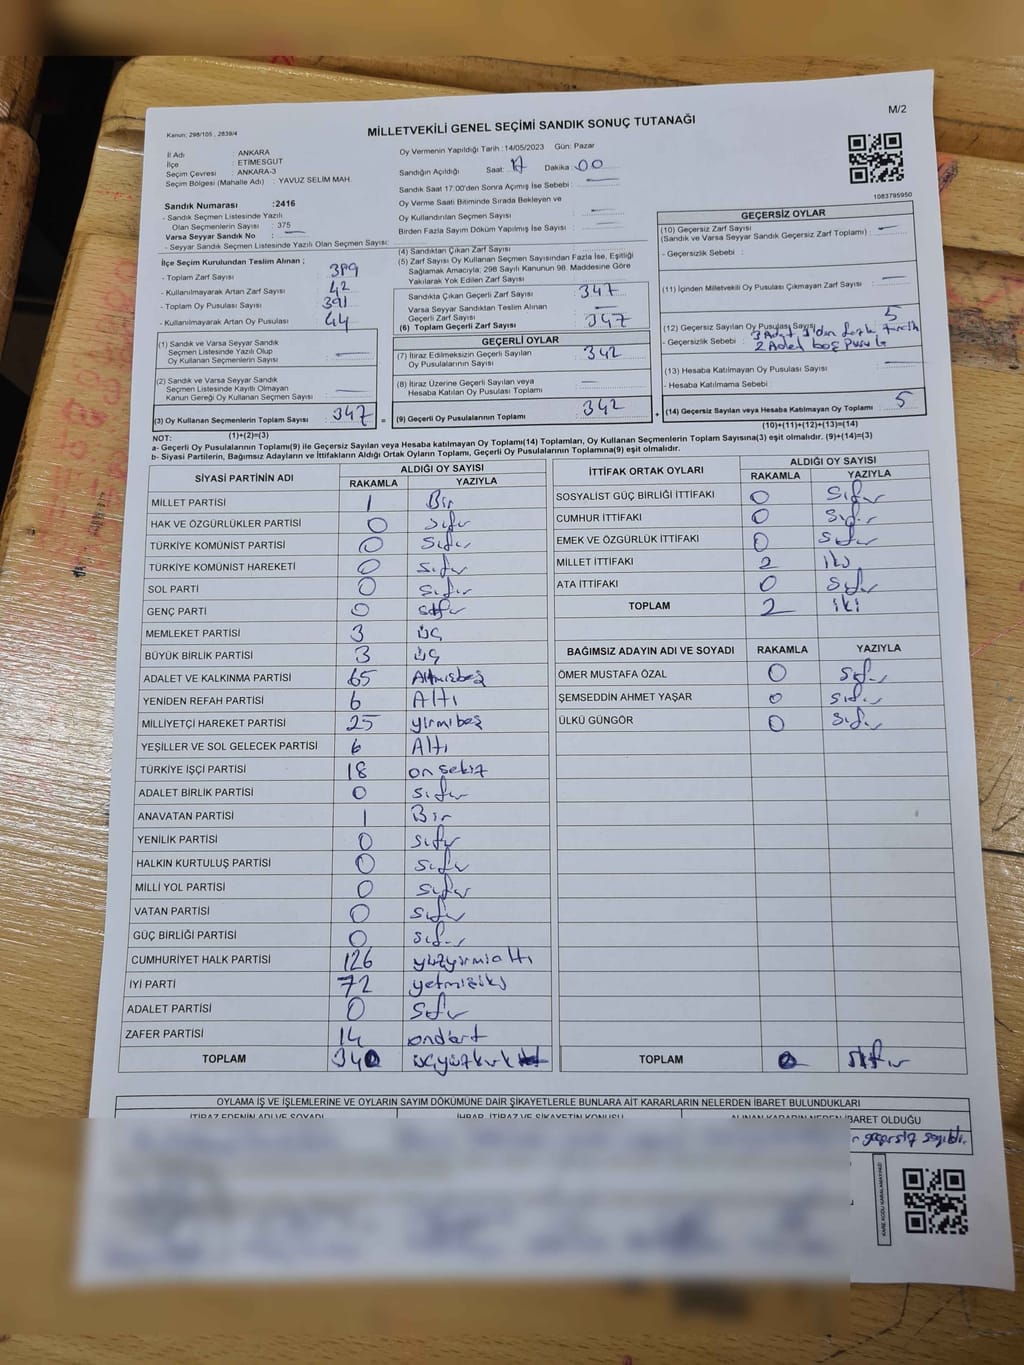 M/2
MİLLETVEKİLİ GENEL SEÇİMİ SANDIK SONUÇ TUTANAĞI
Kanun: 298/105 , 2839/4
İl Adı : ANKARA
İlçe : ETİMESGUT
Seçim Çevresi : ANKARA-3
Seçim Bölgesi (Mahalle Adı) : YAVUZ SELİM MAH.
Sandık Numarası :2416
- Sandık Seçmen Listesinde Yazılı
Olan Seçmenlerin Sayısı : 375
Varsa Seyyar Sandık No : —
- Seyyar Sandık Seçmen Listesinde Yazılı Olan Seçmen Sayısı:
Oy Vermenin Yapıldığı Tarih : 14/05/2023 Gün: Pazar
Sandığın Açıldığı Saat: 17 Dakika : 00
Sandık Saat 17:00'den Sonra Açımış İse Sebebi : —
Oy Verme Saati Bitiminde Sırada Bekleyen ve
Oy Kullandırılan Seçmen Sayısı : —
Birden Fazla Sayım Döküm Yapılmış İse Sayısı : —
1083795950
İlçe Seçim Kurulundan Teslim Alınan ;
- Toplam Zarf Sayısı : 389
- Kullanılmayarak Artan Zarf Sayısı : 42
- Toplam Oy Pusulası Sayısı : 391
- Kullanılmayarak Artan Oy Pusulası : 44
(1) Sandık ve Varsa Seyyar Sandık
Seçmen Listesinde Yazılı Olup
Oy Kullanan Seçmenlerin Sayısı : —
(2) Sandık ve Varsa Seyyar Sandık
Seçmen Listesinde Kayıtlı Olmayan
Kanun Gereği Oy Kullanan Seçmen Sayısı : —
(3) Oy Kullanan Seçmenlerin Toplam Sayısı : 347
(1)+(2)=(3)
(4) Sandıktan Çıkan Zarf Sayısı : —
(5) Zarf Sayısı Oy Kullanan Seçmen Sayısından Fazla İse, Eşitliği
Sağlamak Amacıyla; 298 Sayılı Kanunun 98. Maddesine Göre
Yakılarak Yok Edilen Zarf Sayısı :
Sandıkta Çıkan Geçerli Zarf Sayısı : 347
Varsa Seyyar Sandıktan Teslim Alınan
Geçerli Zarf Sayısı :
(6) Toplam Geçerli Zarf Sayısı : 347
GEÇERLİ OYLAR
(7) İtiraz Edilmeksizin Geçerli Sayılan
Oy Pusulalarının Sayısı : 342
(8) İtiraz Üzerine Geçerli Sayılan veya
Hesaba Katılan Oy Pusulası Toplamı : —
= (9) Geçerli Oy Pusulalarının Toplamı : 342
GEÇERSİZ OYLAR
(10) Geçersiz Zarf Sayısı : —
(Sandık ve Varsa Seyyar Sandık Geçersiz Zarf Toplamı)
- Geçersizlik Sebebi :
(11) İçinden Milletvekili Oy Pusulası Çıkmayan Zarf Sayısı : —
(12) Geçersiz Sayılan Oy Pusulası Sayısı : 5
- Geçersizlik Sebebi : 3 Adet 1'den fazla tercih
2 Adet boş pusula
(13) Hesaba Katılmayan Oy Pusulası Sayısı : —
- Hesaba Katılmama Sebebi :
+ (14) Geçersiz Sayılan veya Hesaba Katılmayan Oy Toplamı : 5
(10)+(11)+(12)+(13)=(14)
NOT:
a- Geçerli Oy Pusulalarının Toplamı(9) ile Geçersiz Sayılan veya Hesaba katılmayan Oy Toplamı(14) Toplamları, Oy Kullanan Seçmenlerin Toplam Sayısına(3) eşit olmalıdır. (9)+(14)=(3)
b- Siyasi Partilerin, Bağımsız Adayların ve İttifakların Aldığı Oyların Toplamı, Geçerli Oy Pusulalarının Toplamına(9) eşit olmalıdır.
SİYASİ PARTİNİN ADI ALDIĞI OY SAYISI
RAKAMLA YAZIYLA
MİLLET PARTİSİ 1 Bir
HAK VE ÖZGÜRLÜKLER PARTİSİ 0 sıfır
TÜRKİYE KOMÜNİST PARTİSİ 0 sıfır
TÜRKİYE KOMÜNİST HAREKETİ 0 sıfır
SOL PARTİ 0 sıfır
GENÇ PARTİ 0 sıfır
MEMLEKET PARTİSİ 3 üç
BÜYÜK BİRLİK PARTİSİ 3 üç
ADALET VE KALKINMA PARTİSİ 65 Altmışbeş
YENİDEN REFAH PARTİSİ 6 Altı
MİLLİYETÇİ HAREKET PARTİSİ 25 yirmibeş
YEŞİLLER VE SOL GELECEK PARTİSİ 6 Altı
TÜRKİYE İŞÇİ PARTİSİ 18 on sekiz
ADALET BİRLİK PARTİSİ 0 sıfır
ANAVATAN PARTİSİ 1 Bir
YENİLİK PARTİSİ 0 sıfır
HALKIN KURTULUŞ PARTİSİ 0 sıfır
MİLLİ YOL PARTİSİ 0 sıfır
VATAN PARTİSİ 0 sıfır
GÜÇ BİRLİĞİ PARTİSİ 0 sıfır
CUMHURİYET HALK PARTİSİ 126 yüzyirmialtı
İYİ PARTİ 72 yetmişiki
ADALET PARTİSİ 0 sıfır
ZAFER PARTİSİ 14 ondört
TOPLAM 340 üçyüzkırk
İTTİFAK ORTAK OYLARI ALDIĞI OY SAYISI
RAKAMLA YAZIYLA
SOSYALİST GÜÇ BİRLİĞİ İTTİFAKI 0 sıfır
CUMHUR İTTİFAKI 0 sıfır
EMEK VE ÖZGÜRLÜK İTTİFAKI 0 sıfır
MİLLET İTTİFAKI 2 iki
ATA İTTİFAKI 0 sıfır
TOPLAM 2 iki
BAĞIMSIZ ADAYIN ADI VE SOYADI RAKAMLA YAZIYLA
ÖMER MUSTAFA ÖZAL 0 sıfır
ŞEMSEDDİN AHMET YAŞAR 0 sıfır
ÜLKÜ GÜNGÖR 0 sıfır
TOPLAM 0 sıfır
OYLAMA İŞ VE İŞLEMLERİNE VE OYLARIN SAYIM DÖKÜMÜNE DAİR ŞİKAYETLERLE BUNLARA AİT KARARLARIN NELERDEN İBARET BULUNDUKLARI
İTİRAZ EDENİN ADI VE SOYADI İHBAR, İTİRAZ VE ŞİKAYETİN KONUSU ALINAN KARARIN NEDEN İBARET OLDUĞU
geçersiz sayıldı.